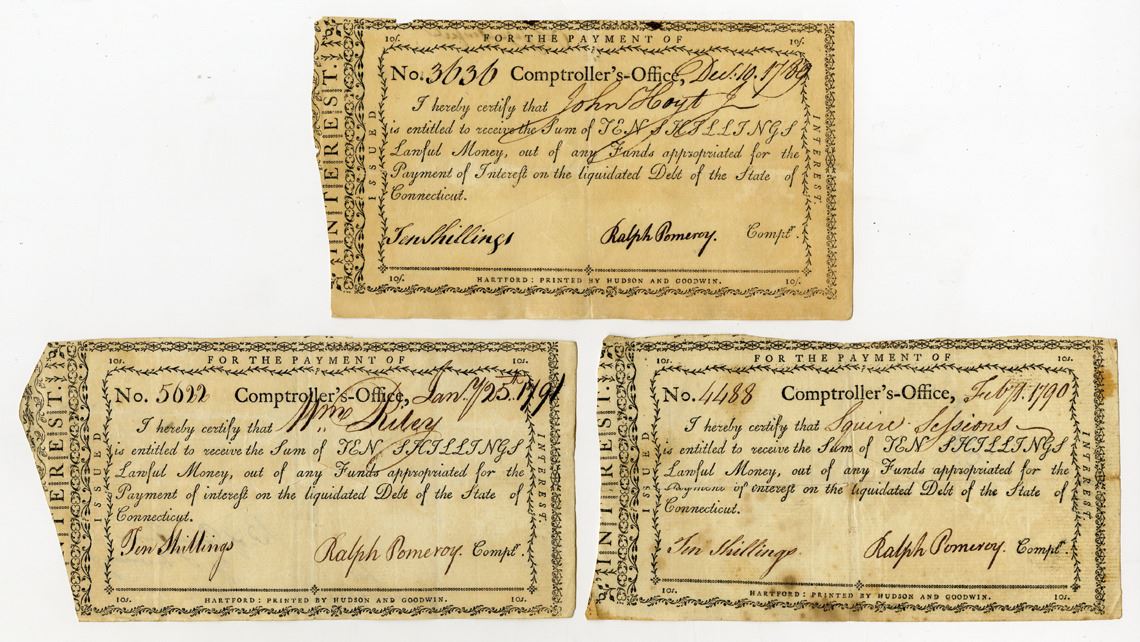 INTEREST.
ISSUED
10ſ. FOR THE PAYMENT OF 10ſ.
No. 3636 Comptroller's-Office, Dec. 19. 1789
I hereby certify that John Hoyt J
is entitled to receive the Sum of TEN SHILLINGS
Lawful Money, out of any Funds appropriated for the
Payment of Intereſt on the liquidated Debt of the State of
Connecticut.
Ten Shillings Ralph Pomeroy. Comptr.
10ſ. HARTFORD: PRINTED BY HUDSON AND GOODWIN. 10ſ.
INTEREST.
INTEREST.
ISSUED
10s. FOR THE PAYMENT OF 10s.
No. 5622 Comptroller's-Office, Jany. 25th. 1791
I hereby certify that Wm. Riley
is entitled to receive the Sum of TEN SHILLINGS
Lawful Money, out of any Funds appropriated for the
Payment of intereſt on the liquidated Debt of the State of
Connecticut.
Ten Shillings Ralph Pomeroy. Comptr.
10s. HARTFORD: PRINTED BY HUDSON AND GOODWIN. 10s.
INTEREST.
INTEREST.
ISSUED
10s. FOR THE PAYMENT OF 10s.
No. 4488 Comptroller's-Office, 1790
I hereby certify that Squire Seſsions
is entitled to receive the Sum of TEN SHILLINGS
Lawful Money, out of any Funds appropriated for the
Payment of intereſt on the liquidated Debt of the State of
Connecticut.
Ten Shillings. Ralph Pomeroy. Comptr.
10s. HARTFORD: PRINTED BY HUDSON AND GOODWIN. 10s.
INTEREST.